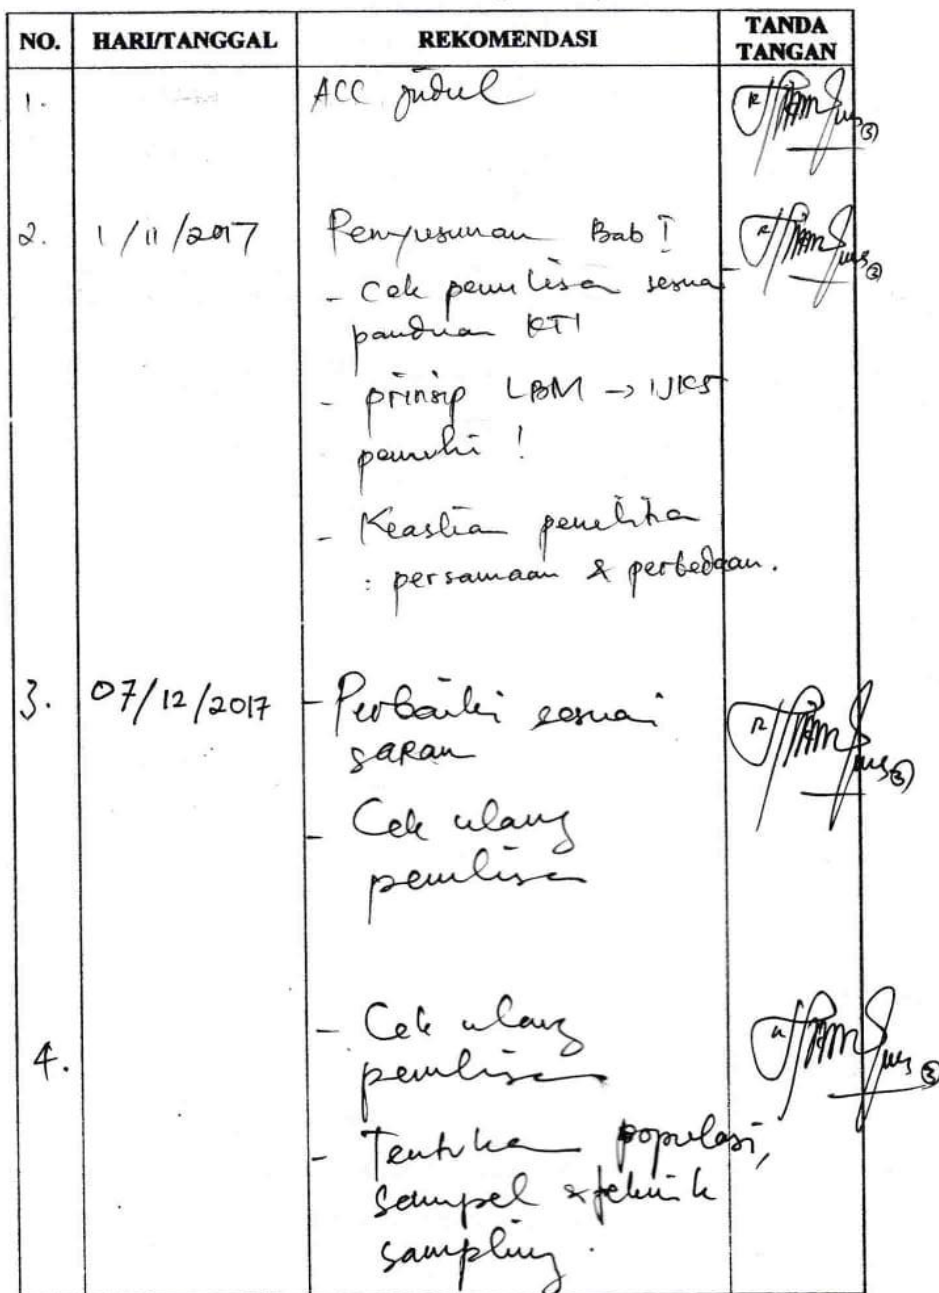 NO. HARI/TANGGAL REKOMENDASI TANDA TANGAN
1. ACC judul
2. 1/11/2017 Penyusunan Bab I
- Cek penulisan sesuai
panduan KTI
- prinsip LBM →
penuhi !
- Keaslian penelitian
: persamaan & perbedaan.
3. 07/12/2017 - Perbaiki sesuai
saran
- Cek ulang
penulisan
4. - Cek ulang
penulisan
- Tentukan populasi,
sampel & teknik
sampling.